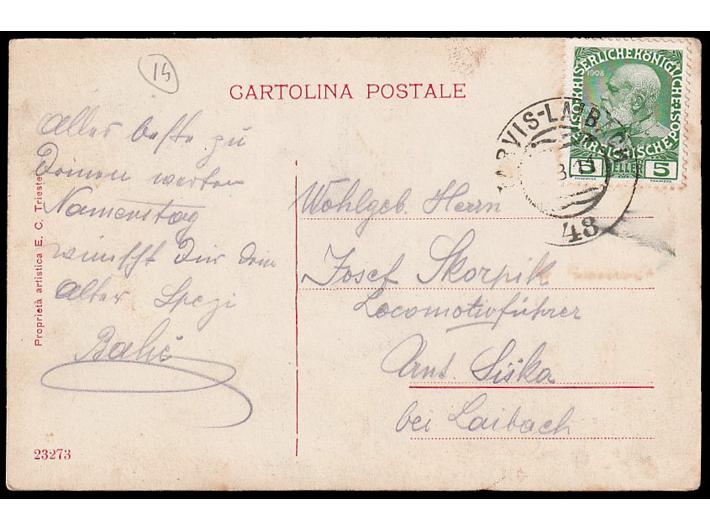 14
CARTOLINA POSTALE
1908
KAISERLICHE KÖNIGLICHE
ÖSTERREICHISCHE POST
5 HELLER 5
TARVIS-LAIBACH
48
Alles beste zu
Deinem werten
Namenstag
wünscht Dir Dein
alter Spezi
Balič
Wohlgeb. Herrn
Josef Skorpik
Locomotivführer
Siška
bei Laibach
Proprietà artistica E. C. Trieste
23273